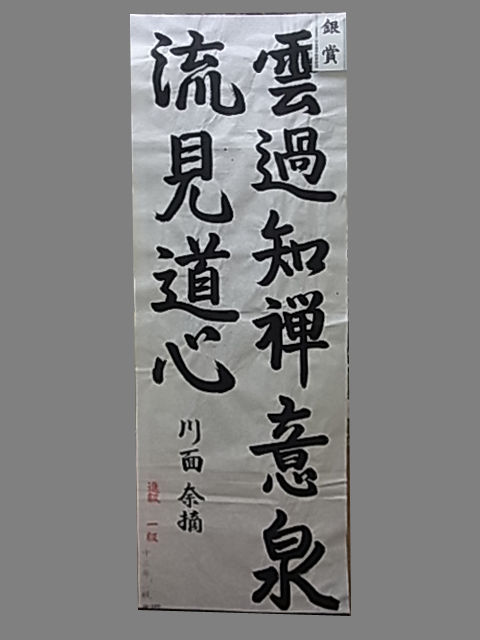 銀賞
雲過知禅意泉
流見道心
川面奈摘
進級 一級